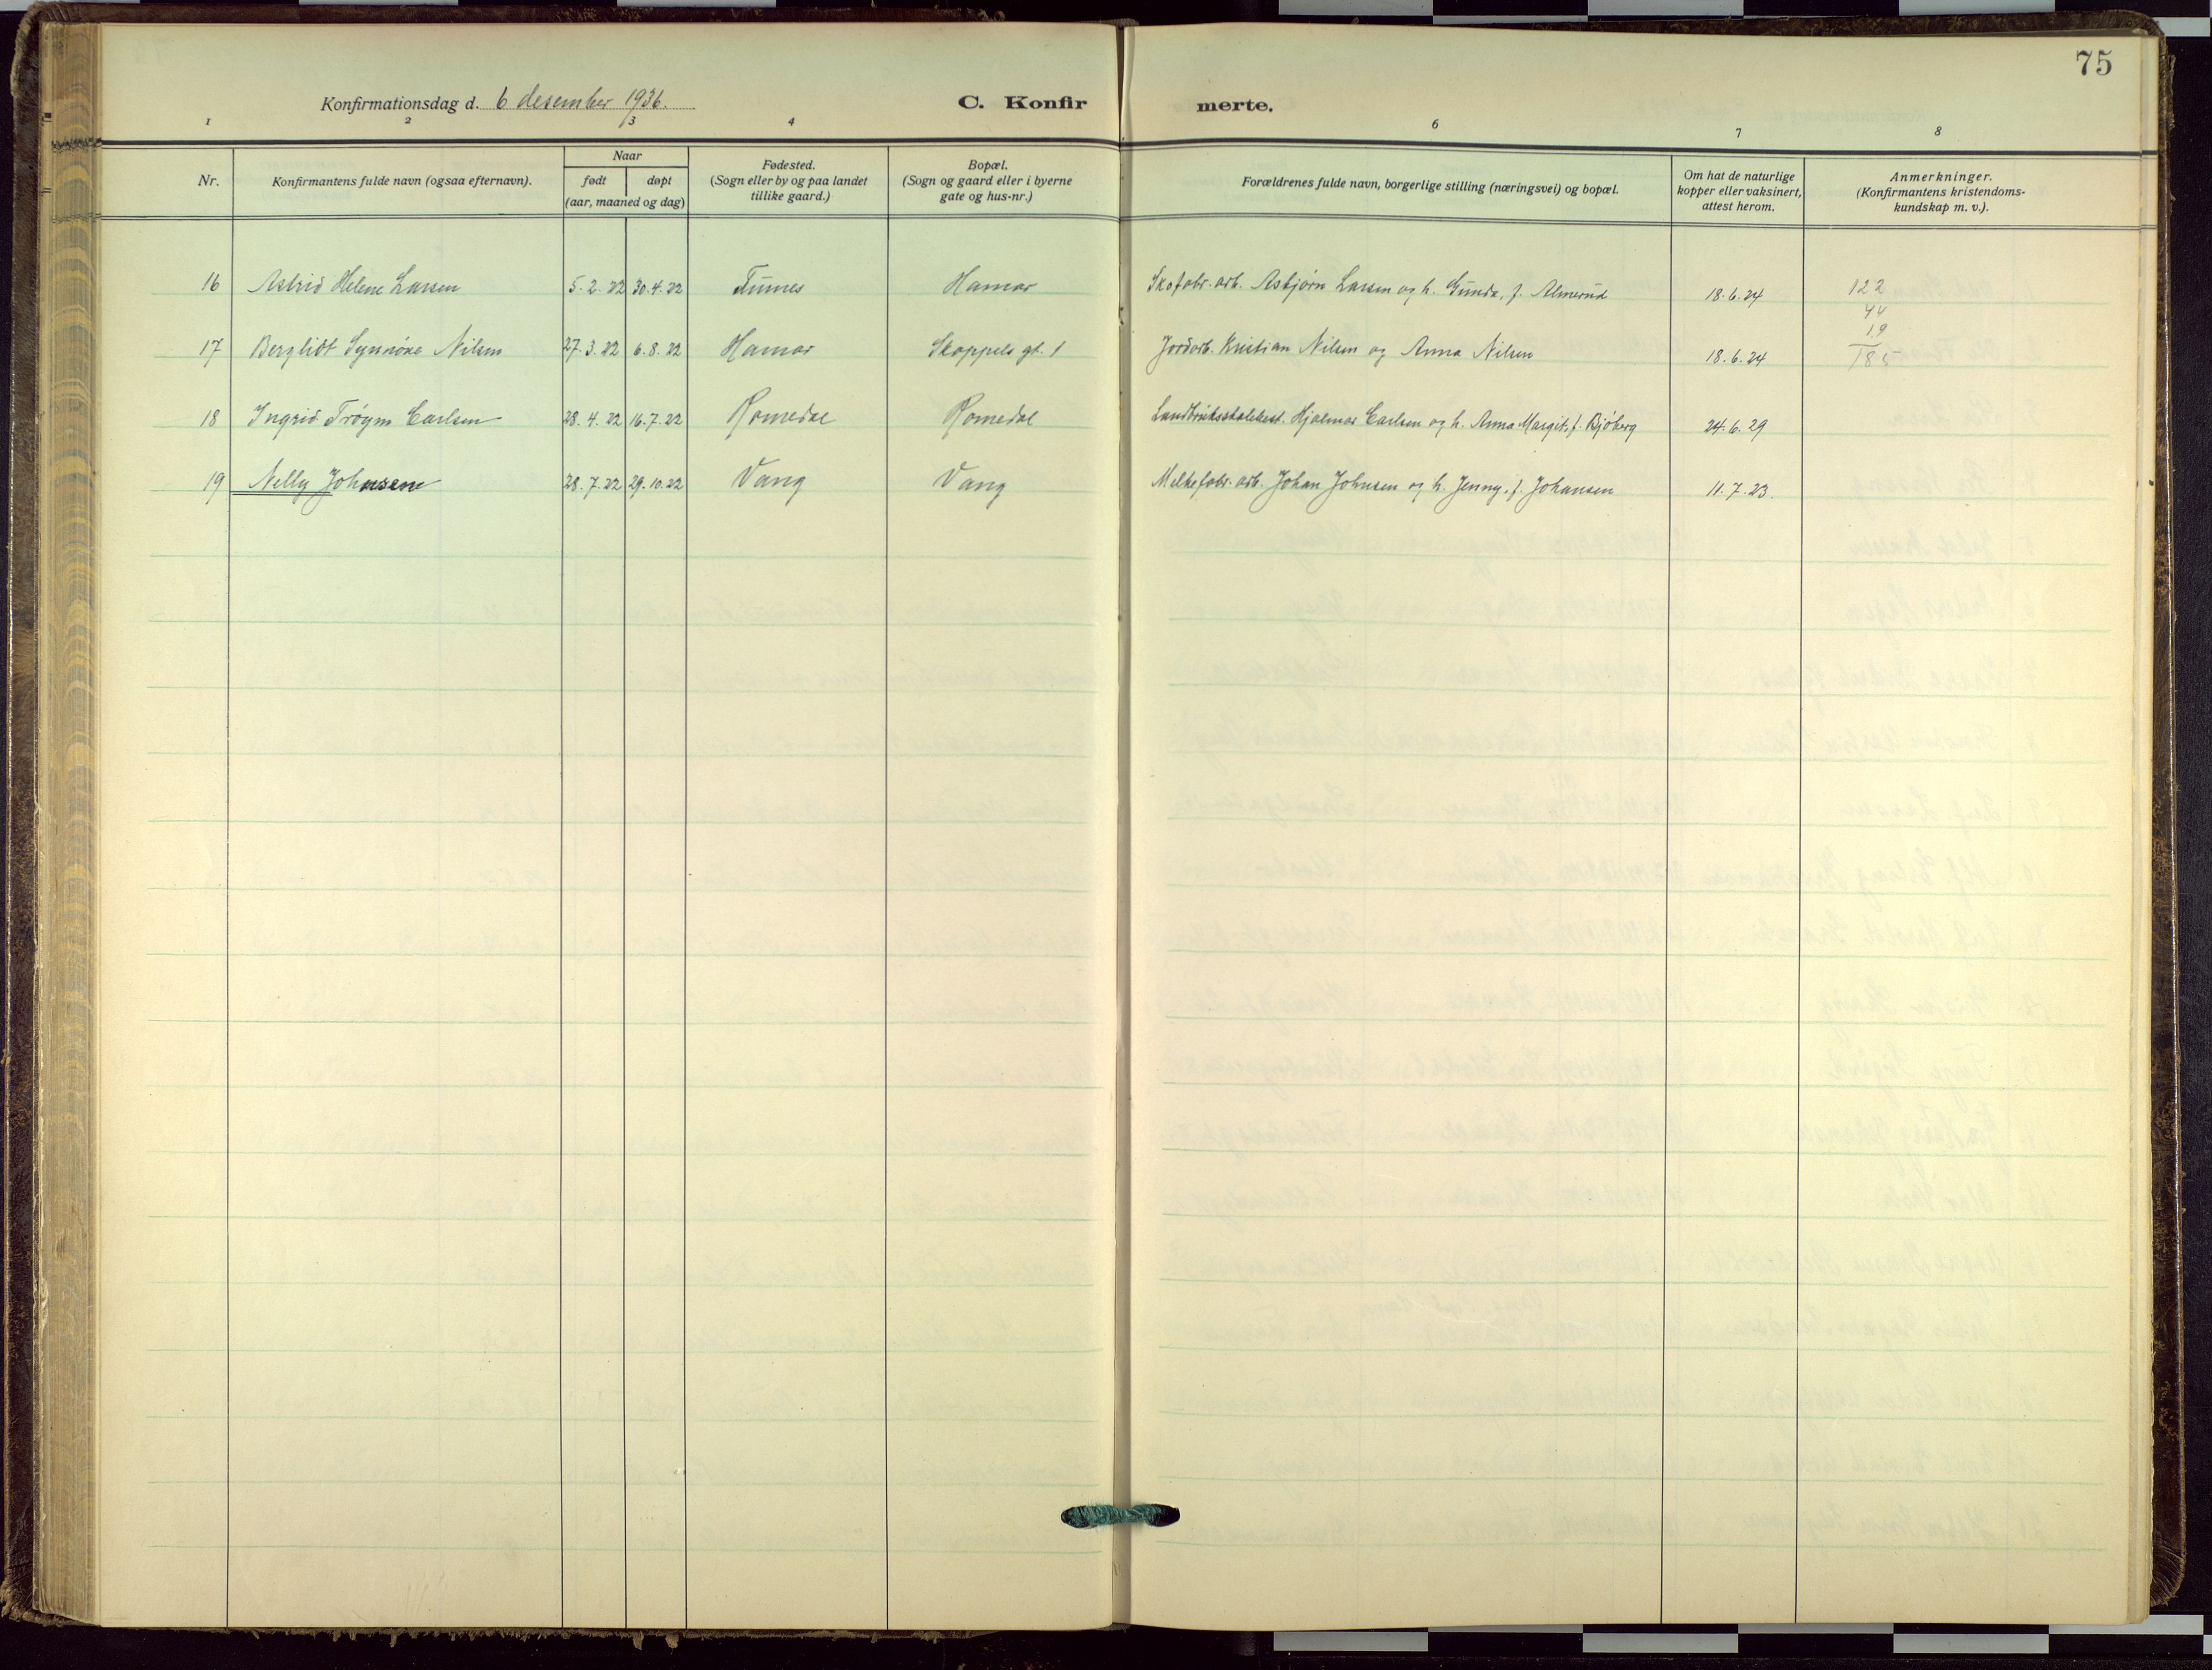 75
Konfirmationsdag d. 6 desember 1936.
C. Konfirmerte.
1 2 3 4 6 7 8
Nr.
Konfirmantens fulde navn (ogsaa efternavn).
Naar
født
døpt
(aar, maaned og dag)
Fødested.
(Sogn eller by og paa landet
tillike gaard.)
Bopæl.
(Sogn og gaard eller i byerne
gate og hus-nr.)
Forældrenes fulde navn, borgerlige stilling (næringsvei) og bopæl.
Om hat de naturlige
kopper eller vaksinert,
attest herom.
Anmerkninger.
(Konfirmantens kristendoms-
kundskap m. v.).
16 Astrid Helene Larsen 5.2.22 30.4.22 Furnes Hamar Skofabr. arb. Asbjørn Larsen og h. Gunda, f. Almerud 18.6.24 122
44
19
17 Bergliot Synnøve Nilsen 27.3.22 6.8.22 Hamar Skappels gt. 1 Jordarb. Kristian Nilsen og Anna Nilsen 18.6.24 185
18 Ingrid Trøym Carlsen 28.4.22 16.7.22 Romedal Romedal Landbruksskolebest. Hjalmar Carlsen og h. Anna Margit, f. Bjøberg 24.6.29
19 Nelly Johnsen 28.7.22 29.10.22 Vang Vang Melkefabr. arb. Johan Johnsen og h. Jenny, f. Johansen 11.7.23.